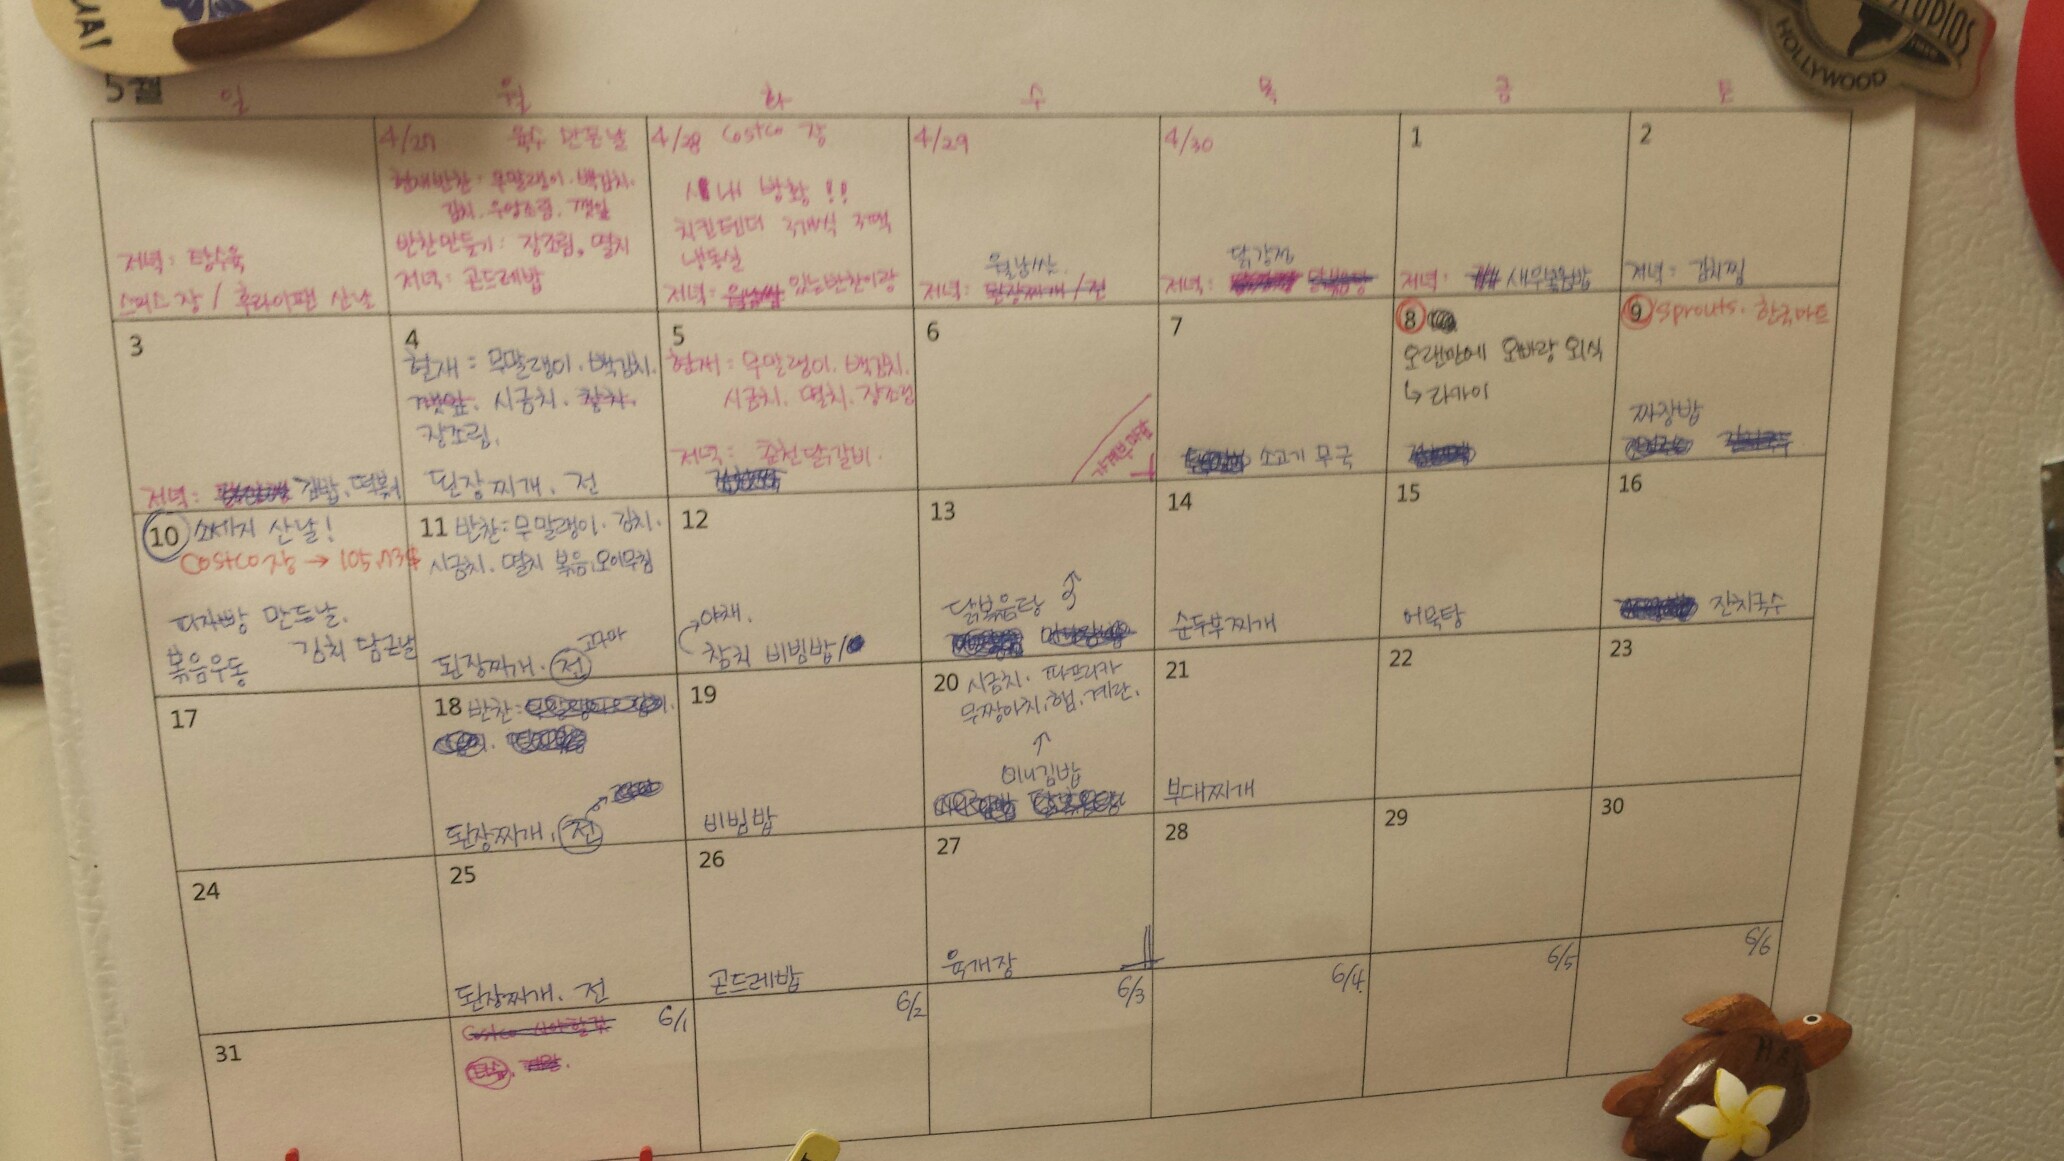 5월
일 월 화 수 목 금 토
4/27 육수 만든날
현재반찬: 무말랭이. 백김치.
김치. 우엉조림. 깻잎
반찬만들기: 장조림, 멸치
저녁: 곤드레밥
4/28 Costco 장
시내 방황!!
치킨텐더 3개씩 3팩
냉동실
저녁: 있는반찬이랑
4/29
월남쌈.
저녁: 된장찌개/전
4/30
닭강정
저녁:
1
저녁: 새우볶음밥
2
저녁: 김치찜
저녁: 탕수육
장 / 후라이팬 산날
3
저녁: 김밥, 떡볶이
4
현재: 무말랭이. 백김치.
깻잎. 시금치.
장조림.
된장찌개. 전
5
현재: 무말랭이. 백김치.
시금치. 멸치. 장조림
저녁: 춘천닭갈비.
6
가계부마감
7
소고기 무국
8
오랜만에 오빠랑 외식
↳ 라까이
9 Sprouts. 한국마트
짜장밥
10 소세지 산날!
Costco장 → 105.73$
피자빵 만든날.
김치 담근날
볶음우동
11 반찬: 무말랭이. 김치.
시금치. 멸치 볶음, 오이무침
고구마
된장찌개. 전
12
야채.
참치 비빔밥/
13
닭볶음탕
14
순두부찌개
15
어묵탕
16
잔치국수
17
18 반찬:
된장찌개. 전
19
비빔밥
20 시금치. 파프리카
무짱아치, 햄, 계란.
미니김밥
21
부대찌개
22
23
24
25
된장찌개. 전
26
곤드레밥
27
육개장
28
29
30
31
Costco 사야할것
6/1
6/2
6/3
6/4
6/5
6/6
STUDIOS
HOLLYWOOD